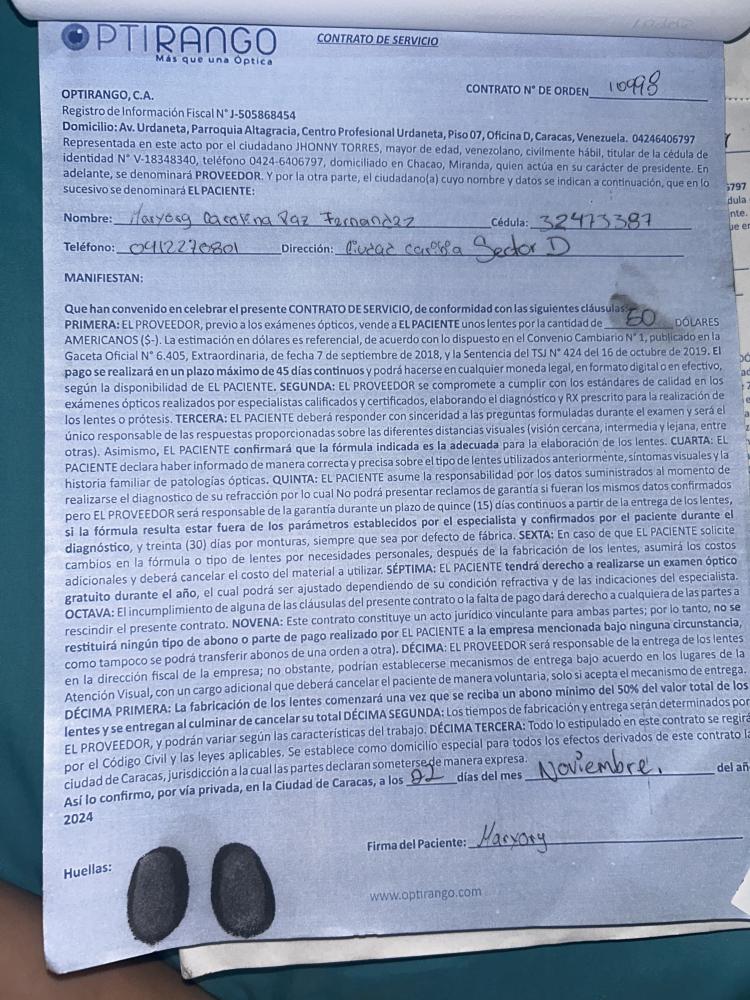 OPTIRANGO
Más que una Óptica
CONTRATO DE SERVICIO
CONTRATO N° DE ORDEN 10998
OPTIRANGO, C.A.
Registro de Información Fiscal N° J-505868454
Domicilio: Av. Urdaneta, Parroquia Altagracia, Centro Profesional Urdaneta, Piso 07, Oficina D, Caracas, Venezuela. 04246406797
Representada en este acto por el ciudadano JHONNY TORRES, mayor de edad, venezolano, civilmente hábil, titular de la cédula de
identidad N° V-18348340, teléfono 0424-6406797, domiciliado en Chacao, Miranda, quien actúa en su carácter de presidente. En
adelante, se denominará PROVEEDOR. Y por la otra parte, el ciudadano(a) cuyo nombre y datos se indican a continuación, que en lo
sucesivo se denominará EL PACIENTE:
Nombre: Maryorg Carolina Paz Fernandez Cédula: 32473387
Teléfono: 04122270801 Dirección: Ciudad Sector D
MANIFIESTAN:
Que han convenido en celebrar el presente CONTRATO DE SERVICIO, de conformidad con las siguientes cláusulas:
PRIMERA: EL PROVEEDOR, previo a los exámenes ópticos, vende a EL PACIENTE unos lentes por la cantidad de 50 DÓLARES
AMERICANOS ($-). La estimación en dólares es referencial, de acuerdo con lo dispuesto en el Convenio Cambiario N° 1, publicado en la
Gaceta Oficial N° 6.405, Extraordinaria, de fecha 7 de septiembre de 2018, y la Sentencia del TSJ N° 424 del 16 de octubre de 2019. El
pago se realizará en un plazo máximo de 45 días continuos y podrá hacerse en cualquier moneda legal, en formato digital o en efectivo,
según la disponibilidad de EL PACIENTE. SEGUNDA: EL PROVEEDOR se compromete a cumplir con los estándares de calidad en los
exámenes ópticos realizados por especialistas calificados y certificados, elaborando el diagnóstico y RX prescrito para la realización de
los lentes o prótesis. TERCERA: EL PACIENTE deberá responder con sinceridad a las preguntas formuladas durante el examen y será el
único responsable de las respuestas proporcionadas sobre las diferentes distancias visuales (visión cercana, intermedia y lejana, entre
otras). Asimismo, EL PACIENTE confirmará que la fórmula indicada es la adecuada para la elaboración de los lentes. CUARTA: EL
PACIENTE declara haber informado de manera correcta y precisa sobre el tipo de lentes utilizados anteriormente, síntomas visuales y la
historia familiar de patologías ópticas. QUINTA: EL PACIENTE asume la responsabilidad por los datos suministrados al momento de
realizarse el diagnostico de su refracción por lo cual No podrá presentar reclamos de garantía si fueran los mismos datos confirmados
pero EL PROVEEDOR será responsable de la garantía durante un plazo de quince (15) días continuos a partir de la entrega de los lentes,
si la fórmula resulta estar fuera de los parámetros establecidos por el especialista y confirmados por el paciente durante el
diagnóstico, y treinta (30) días por monturas, siempre que sea por defecto de fábrica. SEXTA: En caso de que EL PACIENTE solicite
cambios en la fórmula o tipo de lentes por necesidades personales, después de la fabricación de los lentes, asumirá los costos
adicionales y deberá cancelar el costo del material a utilizar. SÉPTIMA: EL PACIENTE tendrá derecho a realizarse un examen óptico
gratuito durante el año, el cual podrá ser ajustado dependiendo de su condición refractiva y de las indicaciones del especialista.
OCTAVA: El incumplimiento de alguna de las cláusulas del presente contrato o la falta de pago dará derecho a cualquiera de las partes a
rescindir el presente contrato. NOVENA: Este contrato constituye un acto jurídico vinculante para ambas partes; por lo tanto, no se
restituirá ningún tipo de abono o parte de pago realizado por EL PACIENTE a la empresa mencionada bajo ninguna circunstancia,
como tampoco se podrá transferir abonos de una orden a otra). DÉCIMA: EL PROVEEDOR será responsable de la entrega de los lentes
en la dirección fiscal de la empresa; no obstante, podrían establecerse mecanismos de entrega bajo acuerdo en los lugares de la
Atención Visual, con un cargo adicional que deberá cancelar el paciente de manera voluntaria, solo si acepta el mecanismo de entrega.
DÉCIMA PRIMERA: La fabricación de los lentes comenzará una vez que se reciba un abono mínimo del 50% del valor total de los
lentes y se entregan al culminar de cancelar su total DÉCIMA SEGUNDA: Los tiempos de fabricación y entrega serán determinados por
EL PROVEEDOR, y podrán variar según las características del trabajo. DÉCIMA TERCERA: Todo lo estipulado en este contrato se regirá
por el Código Civil y las leyes aplicables. Se establece como domicilio especial para todos los efectos derivados de este contrato la
ciudad de Caracas, jurisdicción a la cual las partes declaran someterse de manera expresa.
Así lo confirmo, por vía privada, en la Ciudad de Caracas, a los 22 días del mes Noviembre. del añ
2024
Firma del Paciente: Maryory
Huellas:
www.optirango.com